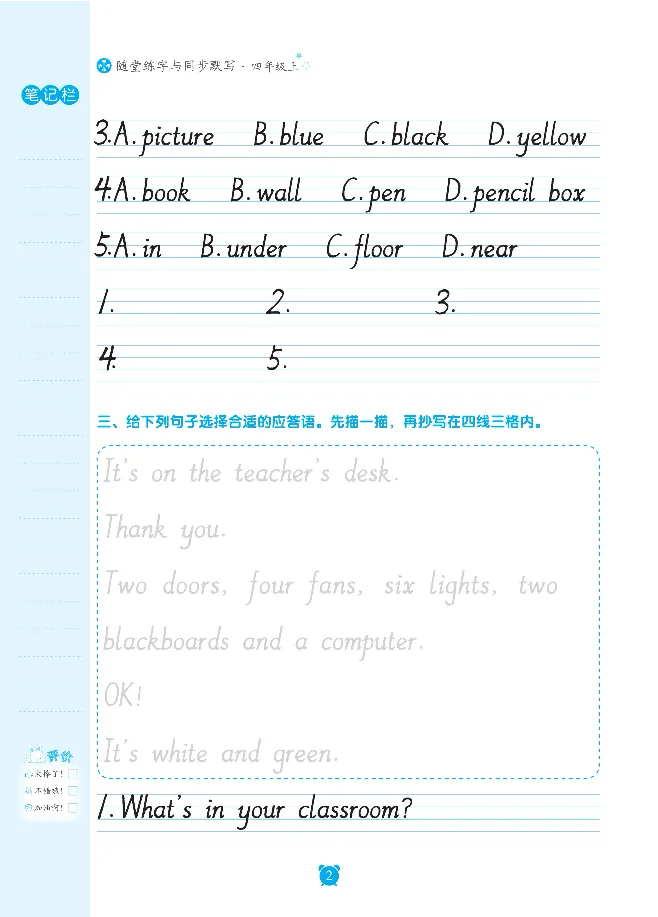 随堂练字与同步默写·四年级上
笔记栏
3.A.picture B.blue C.black D.yellow
4.A.book B.wall C.pen D.pencil box
5.A.in B.under C.floor D.near
1. 2. 3.
4. 5.
三、给下列句子选择合适的应答语。先描一描，再抄写在四线三格内。
It's on the teacher's desk.
Thank you.
Two doors, four fans, six lights, two
blackboards and a computer.
OK!
It's white and green.
评价
太棒了！
不错哦！
加油啊！
1.What's in your classroom?
2